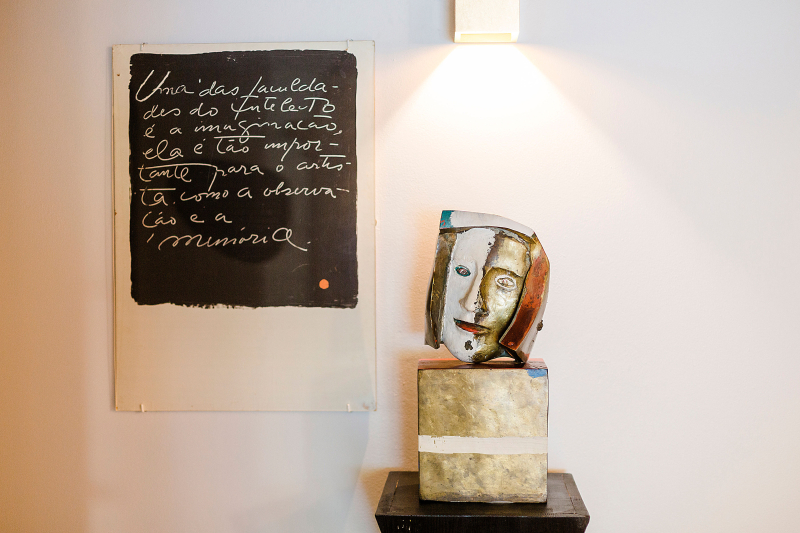 Uma das faculda-
des do intelecto
é a imaginação,
ela é tão impor-
tante para o artis-
ta como a observa-
ção e a
memória.